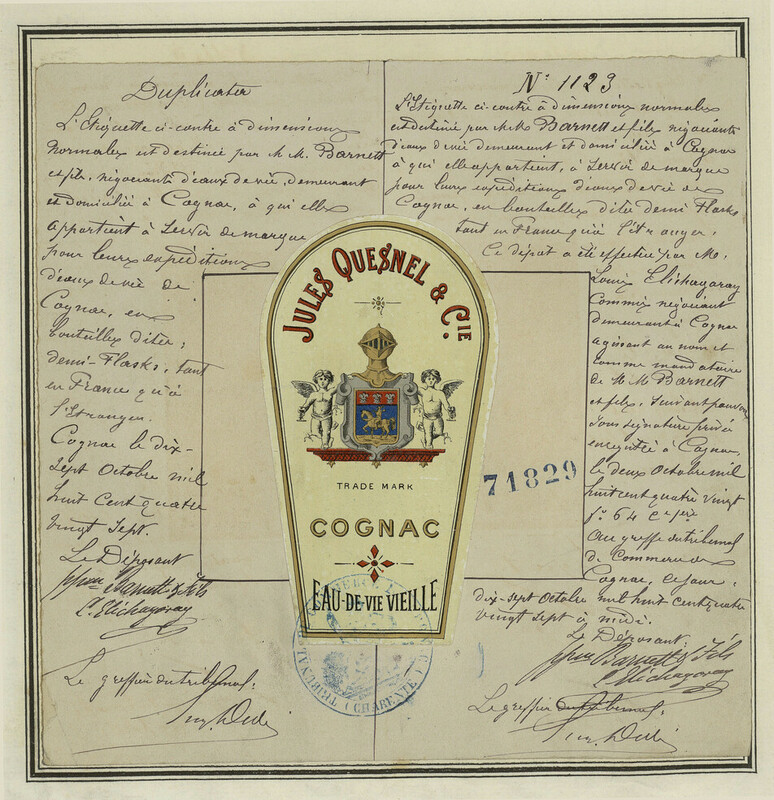 Duplicata
L'Etiquette ci-contre à dimensions
normales est destinée par M M. Barnett
et fils, négociants d'eaux de vie, demeurant
et domiciliés à Cognac, à qui elle
appartient à servir de marque
pour leurs expéditions
d'eaux de vie de
Cognac, en
bouteilles dites,
demi-Flasks, tant
en France qu'à
l'Etranger.
Cognac le dix-
sept Octobre mil
huit cent quatre
vingt sept.
Le Déposant
Barnett & fils
L. Elichagaray
Le greffier du tribunal:
N° 1123
L'Etiquette ci-contre à dimensions normales
est destinée par M.M. Barnett et fils négociants
d'eaux de vie demeurant et domiciliés à Cognac
à qui elle appartient, à servir de marque
pour leurs expéditions d'eaux de vie de
Cognac, en bouteilles dites demi Flasks
tant en France qu'à l'étranger.
Ce dépôt a été effectué par M.
Louis Elichagaray
Commis négociant
demeurant à Cognac
agissant au nom et
comme mandataire
de M.M Barnett
et fils, suivant pouvoir
sous signature privée
enregistré à Cognac,
le deux Octobre mil
huit cent quatre vingt
f° 64 c
Au greffe du tribunal
de Commerce de
Cognac, ce jour:
dix sept Octobre mil huit cent quatre
vingt sept à midi.
Le Déposant.
Barnett & Fils
Elichagaray
Le greffier du tribunal:
JULES QUESNEL & CIE.
TRADE MARK
COGNAC
EAU-DE-VIE VIEILLE
71829
TRIBUNAL
(CHARENTE)